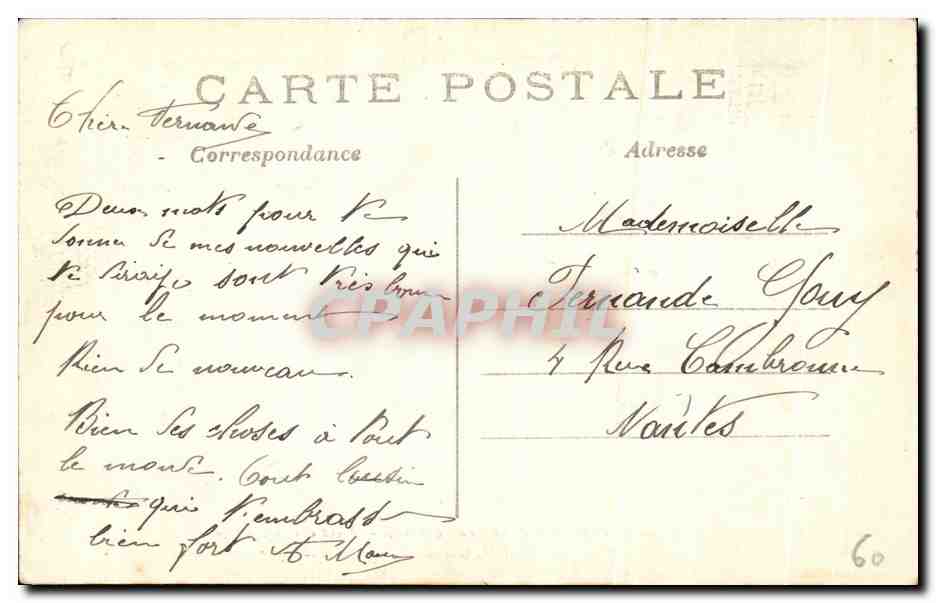 CARTE POSTALE
Chère Fernande
Correspondance
Adresse
Deux mots pour te
donner de mes nouvelles qui
te sont très bonne
pour le moment
Rien de nouveau.
Bien des choses à tout
le monde. Ton Cousin
qui t'embrasse
bien fort
Mademoiselle
Fernande Gouy
4 Rue Cambronne
Nantes
CPAPHIL
60